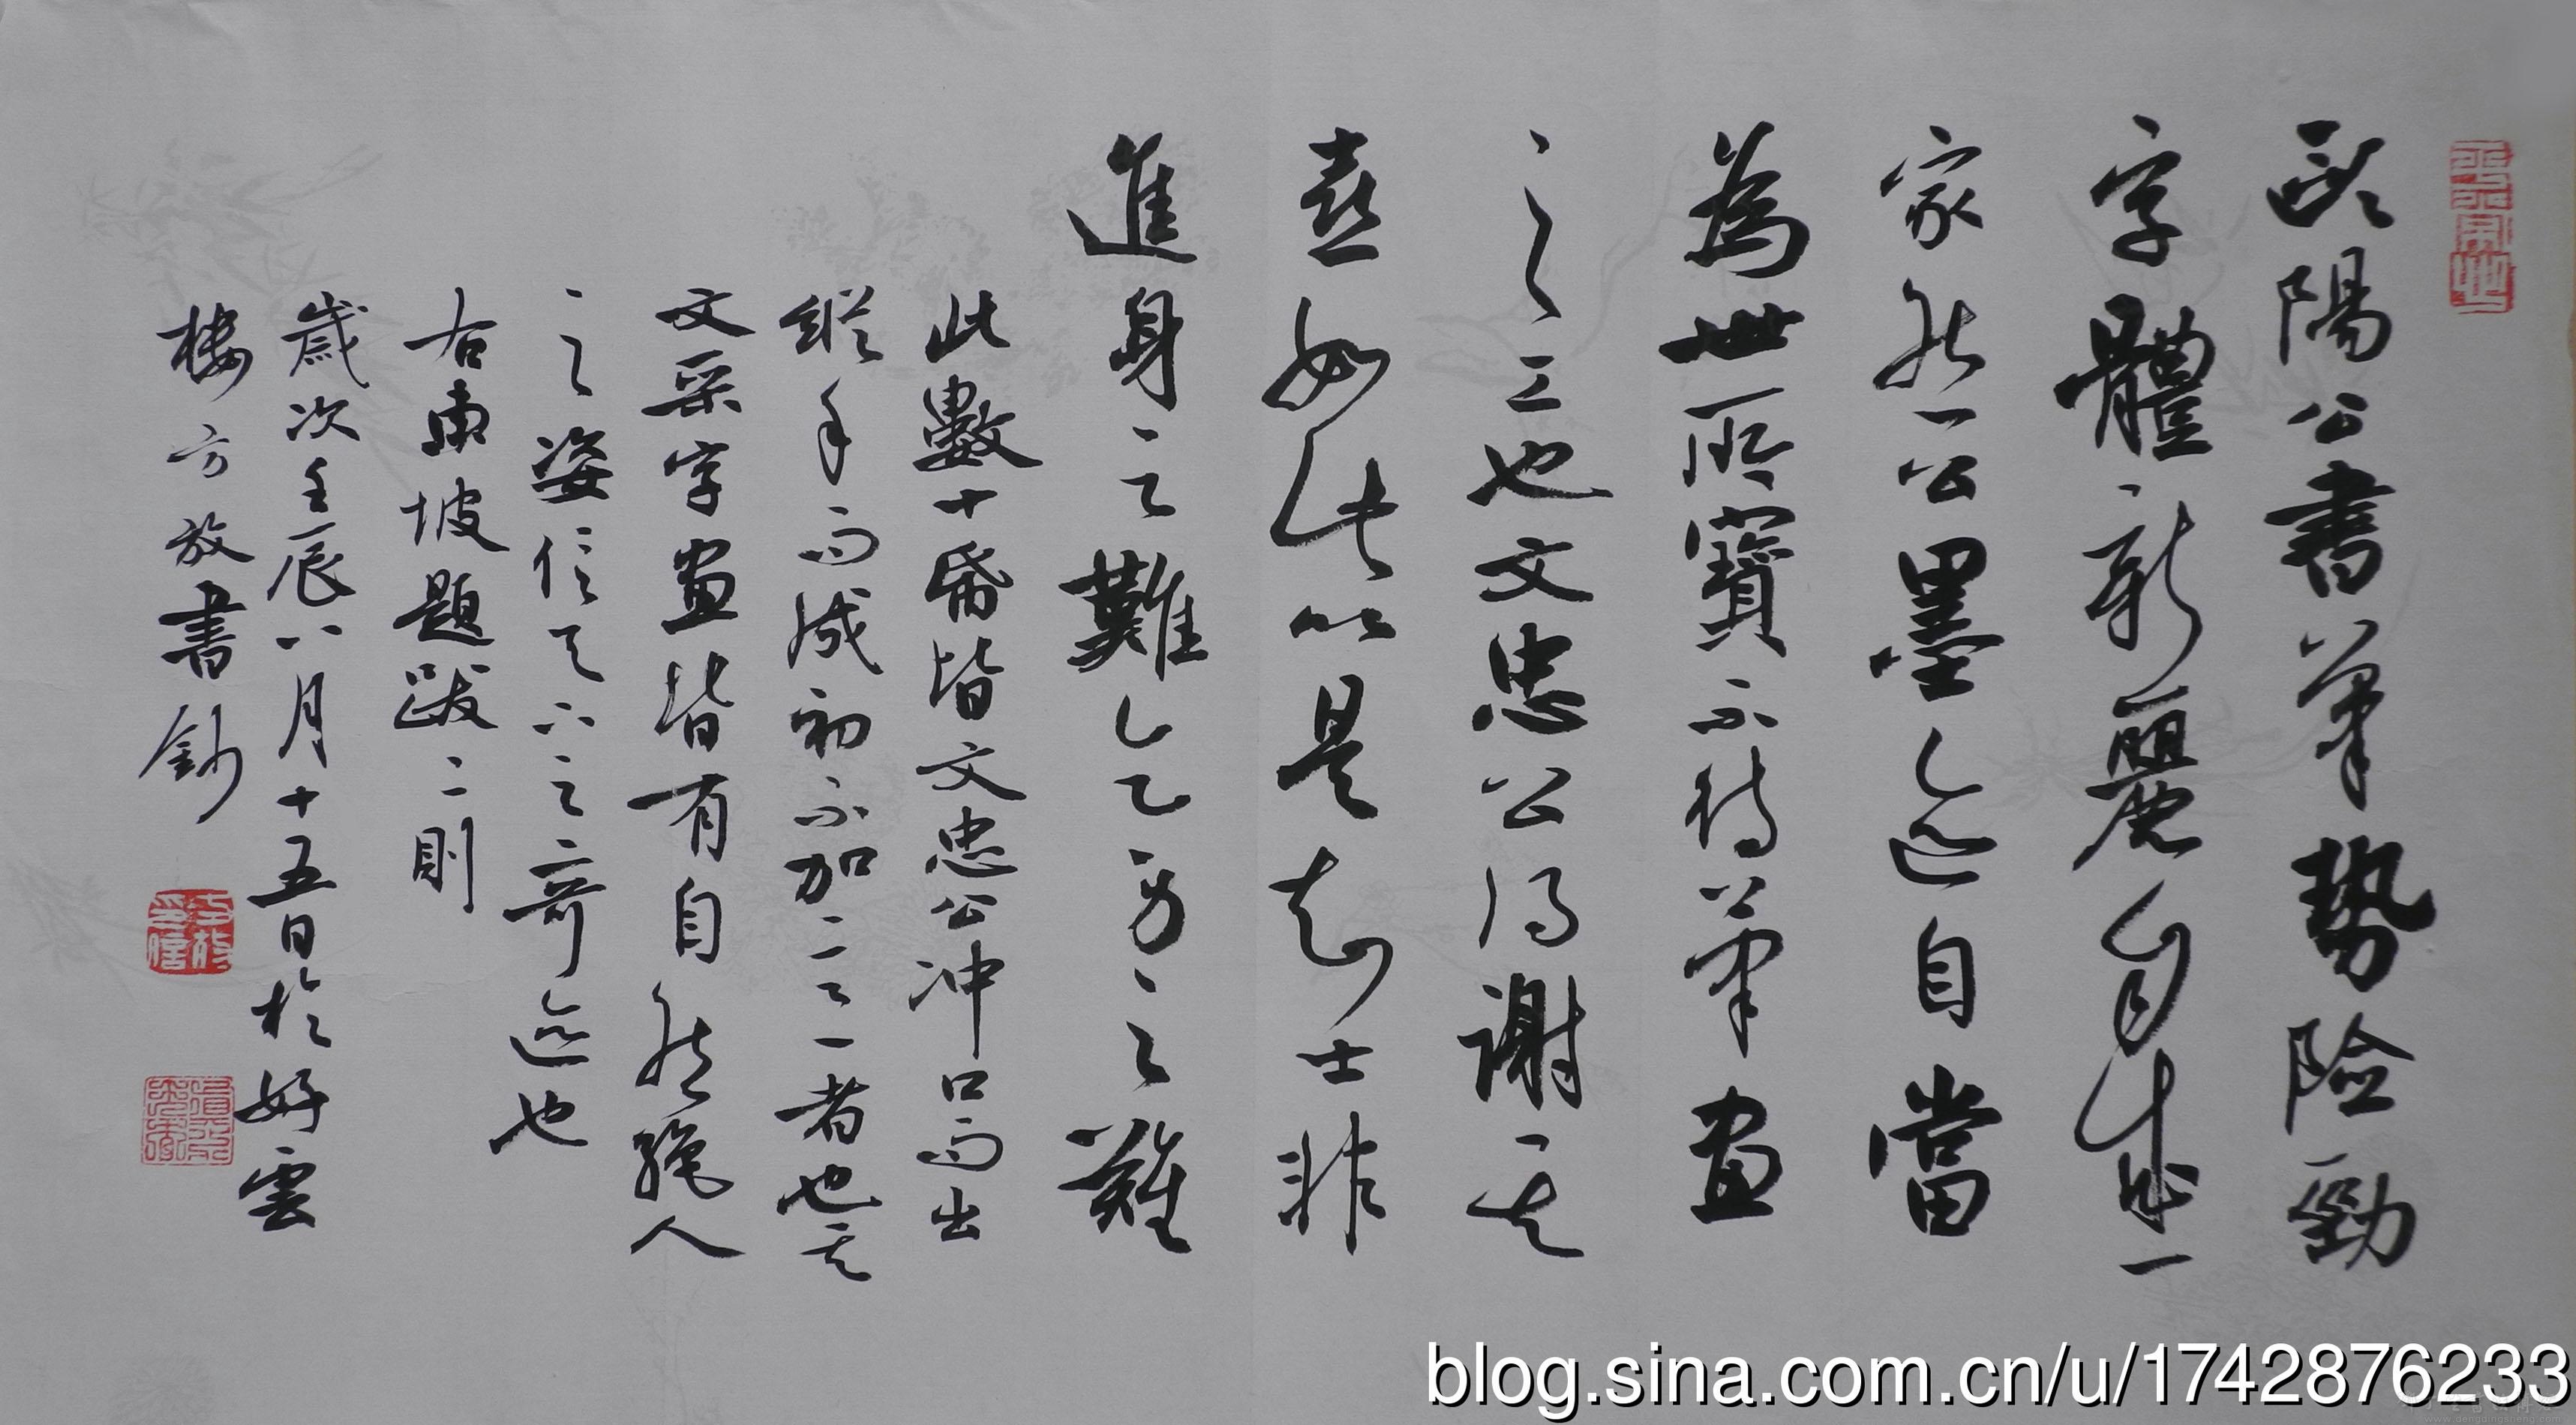 歐陽公書筆勢險勁
字體新麗自成一
家然公墨迹自當
為世所寶不待筆畫
之工也文忠公得謝其
喜如此以是知士非
進身之難乞身之難
此數十紙皆文忠公冲口而出
縱手而成初不加意者也其
文采字畫皆有自然絕人
之姿信天下之奇迹也
右東坡題跋二則
歲次壬辰八月十五日於好雲
樓方放書鈔
blog.sina.com.cn/u/1742876233